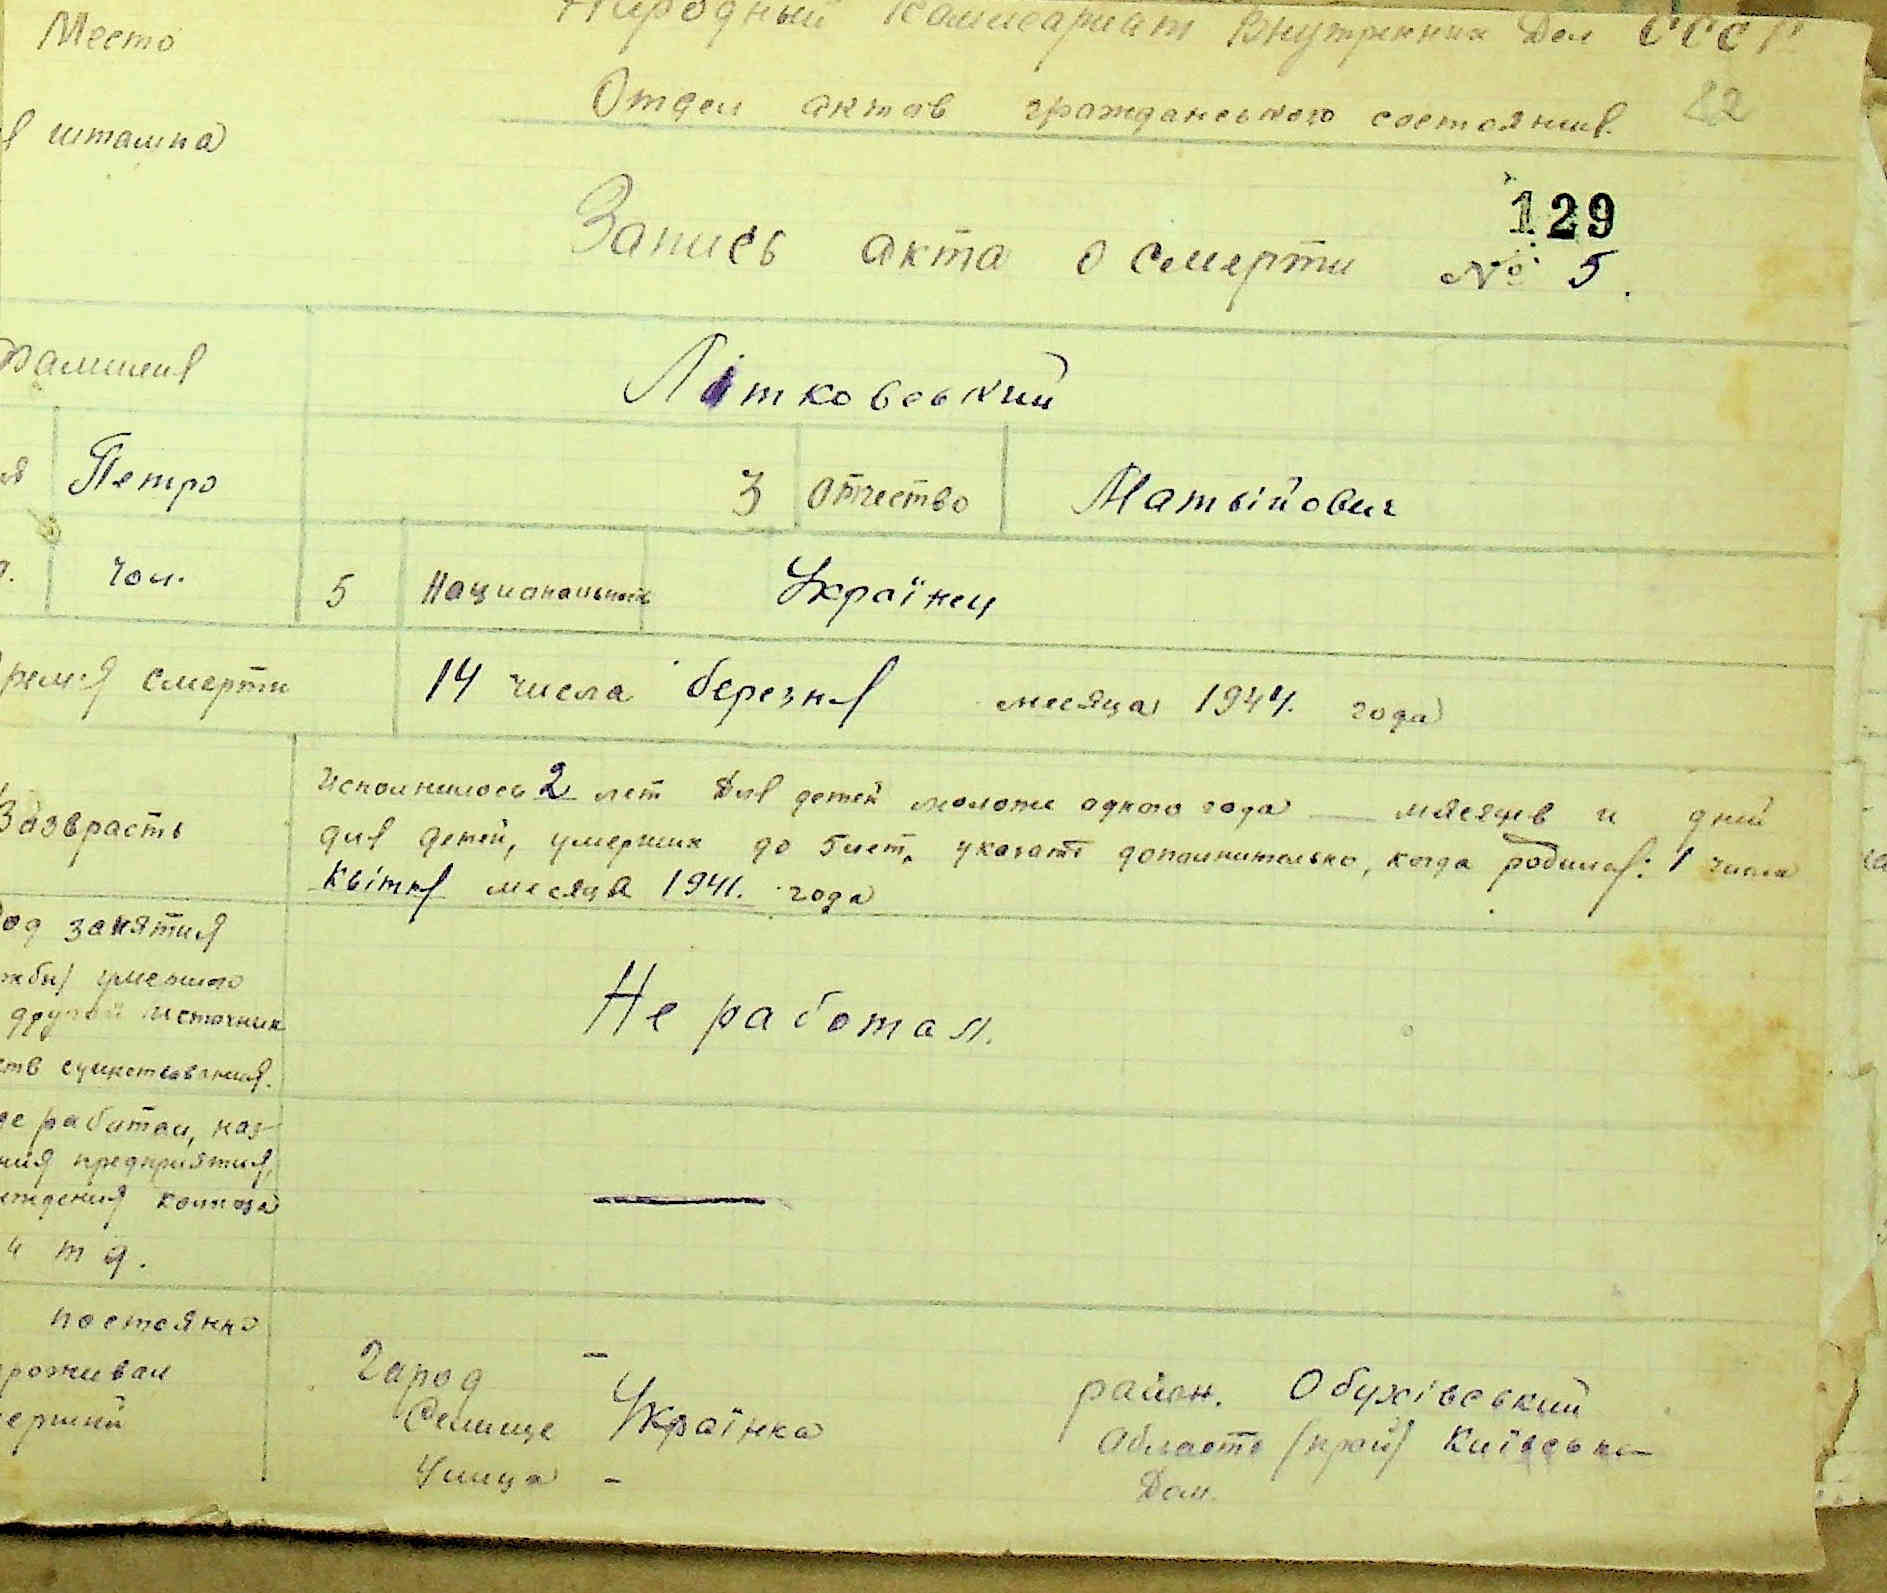 Место
Народный Комиссариат Внутренних Дел СССР
Отдел актов гражданського состояния. 22
штампа
129
Запись акта о смерти № 5.
Фамилия Літковський
Петро 3 Отчество Матвійович
чол. 5 Национальность Українец
Время смерти 14 числа березня месяца 1944. года
Возврасть
Исполнилось 2 лет Для детей моложе одного года — месяцев и дней
для детей, умерших до 5 лет, указать дополнительно, когда родился: 1 числа
квітня месяца 1941. года
Род занятия
умершего
другой источник
существования.
Не работал.
работал, наз-
предприятия,
колхоза
и т д.
—
постоянно
проживал
Город —
район. Обухівський
Селище Українка
Область /край/ Київська
Улица –
Дом.